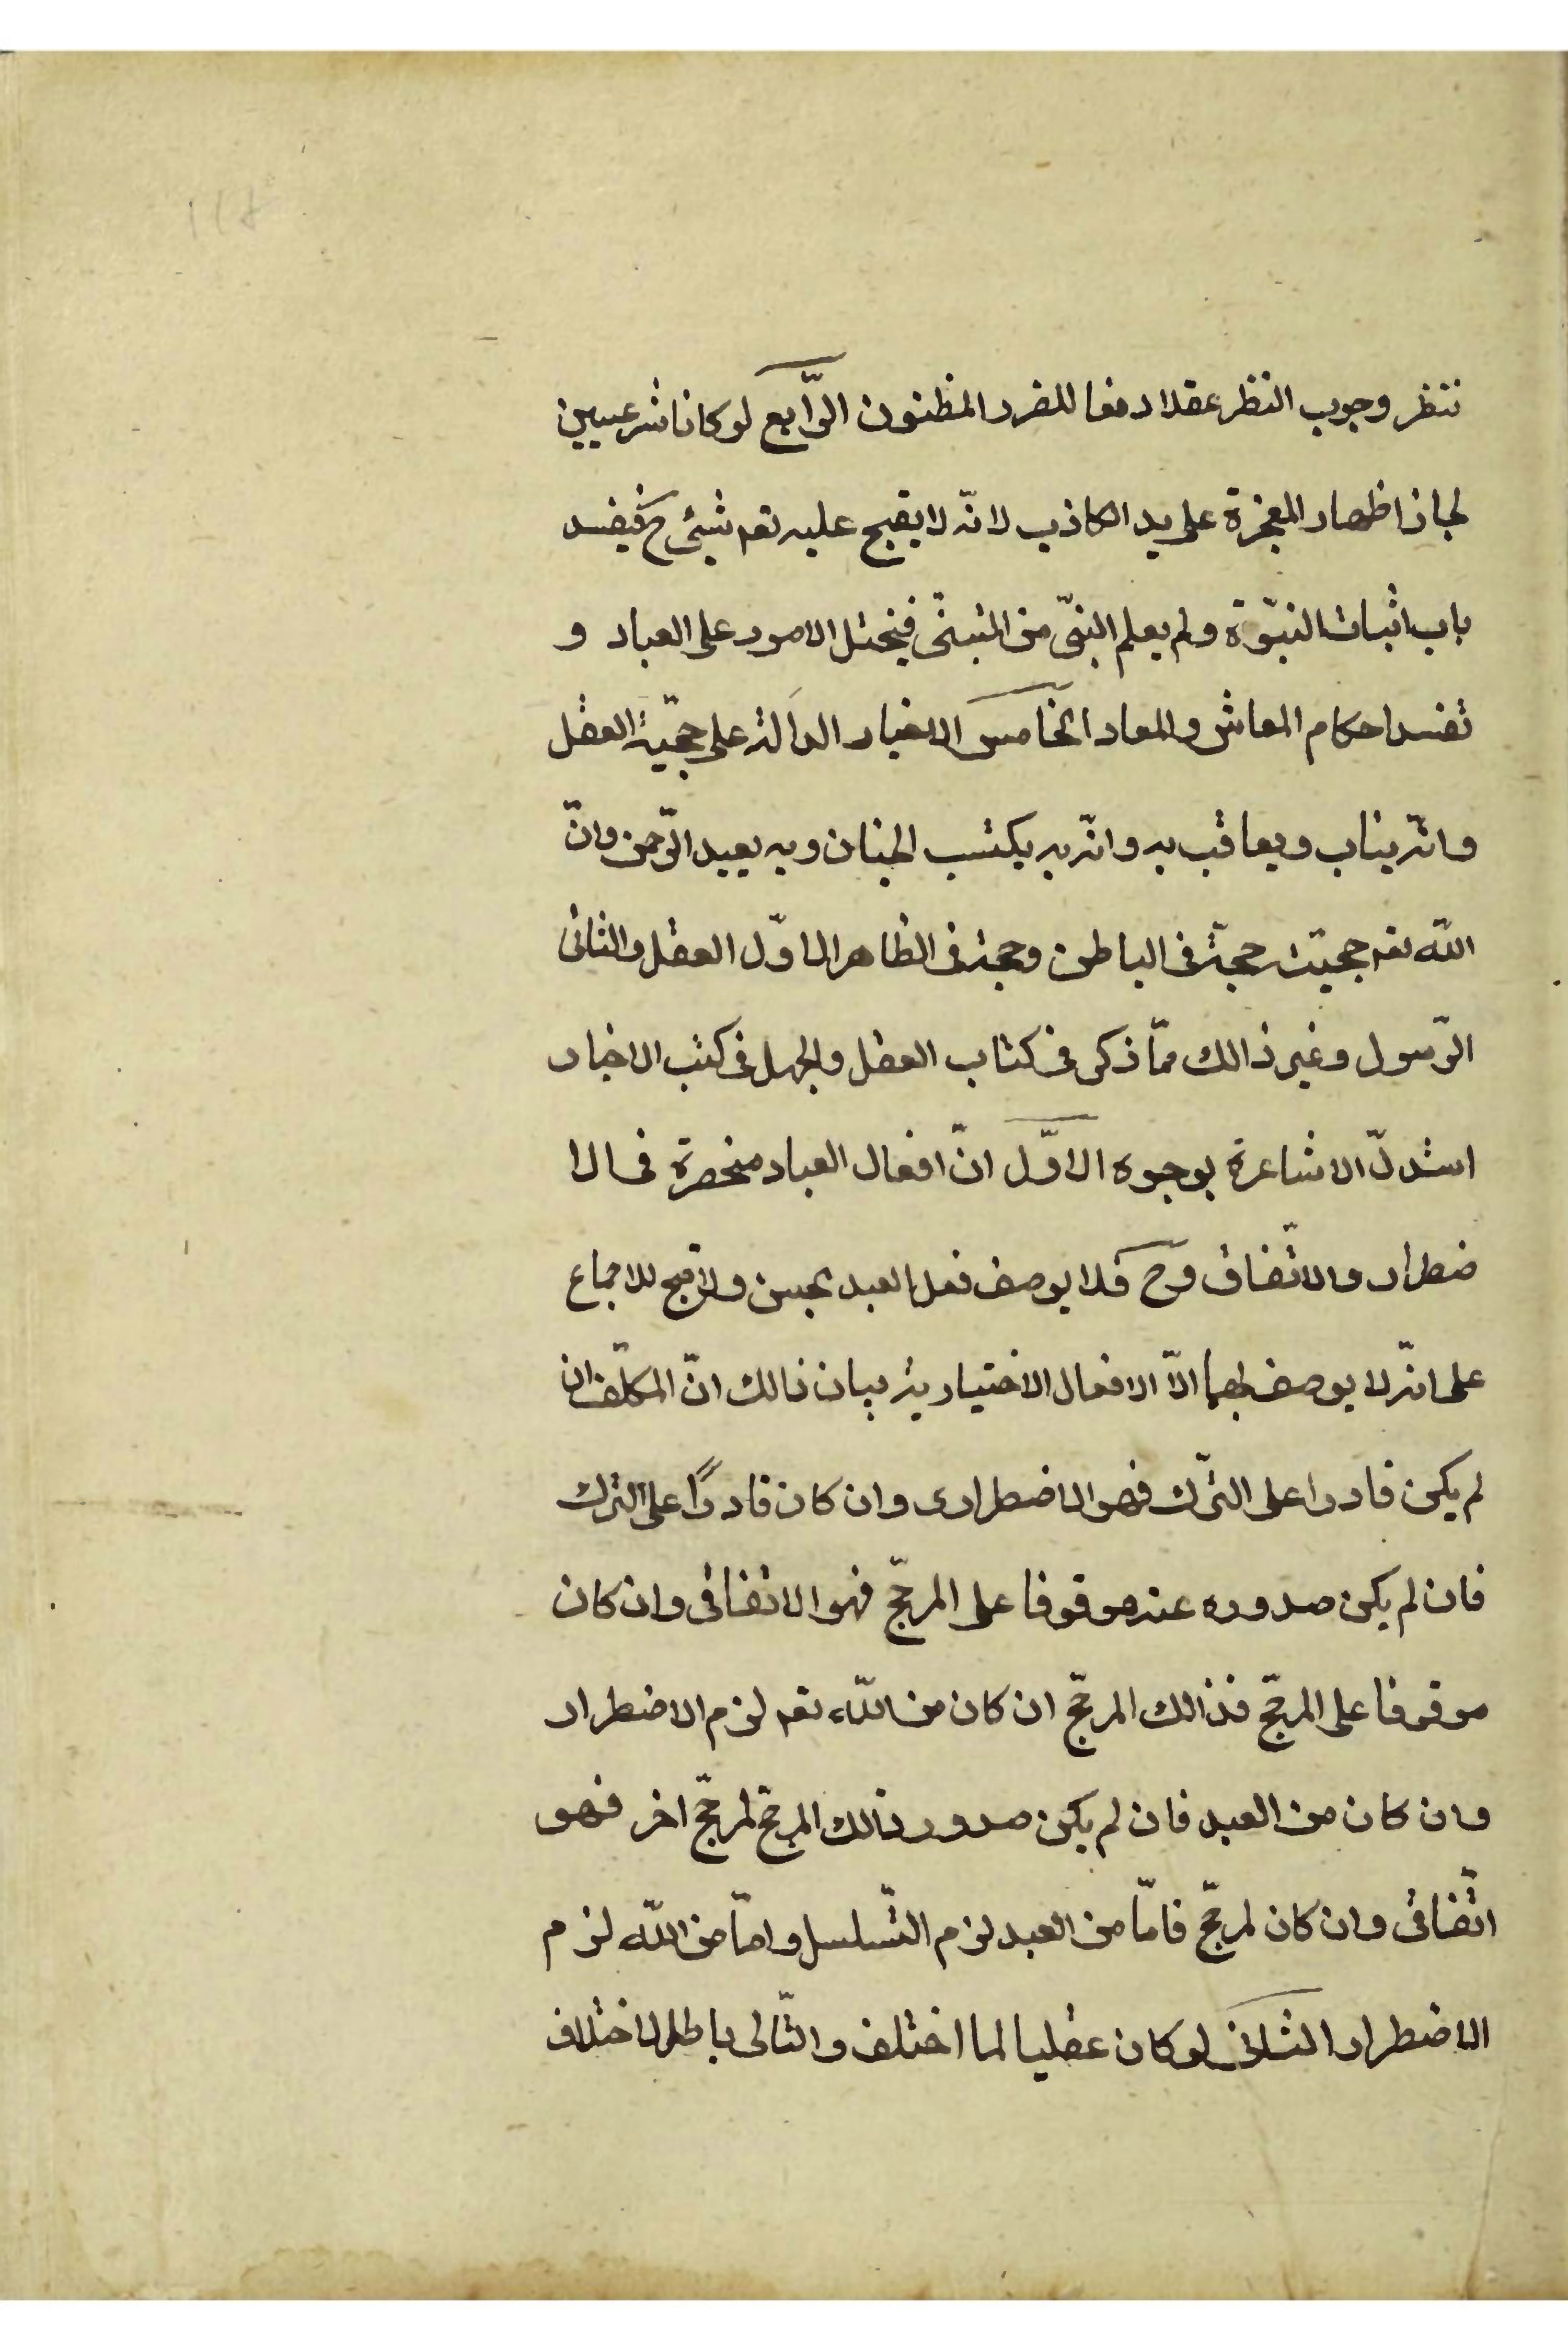 ننظر وجوب النظر عقلا دفعا للضرر المظنون الرّابع لو كانا شرعيين
لجاز اظهار المعجزة على يد الكاذب لانّه لا يقبح عليه تعم شيئ ح فيفسد
باب اثبات النبوّة ولم يعلم النبىّ من المتبنّى فيختل الامور على العباد و
تفسد احكام المعاش والمعاد الخامس الاخبار الدالة على حجّية العقل
وانّه يثاب ويعاقب به وانّه به يكتسب الجنان وبه يعبد الرّحمن وانّ
اللّه تعم حجتين حجّة فى الباطن وحجة فى الظاهر الاوّل العقل والثانى
الرّسول وغير ذالك ممّا ذكر فى كتاب العقل والجهل فى كتب الاخبار
استدلّ الاشاعرة بوجوه الاوّل انّ افعال العباد منحصرة فى الا
ضطرار والاتّفاق وح فلا يوصف فعل العبد بحسن ولا قبح للاجماع
على انّه لا يوصف بهما الاّ الافعال الاختيارية بيان ذالك انّ المكلّف ان
لم يكن قادرا على التّرك فهو الاضطرارى وان كان قادرًا على الترك
فان لم يكن صدوره عنه موقوفا على المرجّح فهو الاتفاقى وان كان
موقوفا على المرجّح فذالك المرجّح ان كان من اللّه تعم لزم الاضطرار
وان كان من العبد فان لم يكن صدور ذالك المرجّح لمرجّح اخر فهو
اتّفاقى وان كان لمرجّح فامّا من العبد لزم التّسلسل وامّا من اللّه لزم
الاضطرار الثانى لو كان عقليا لما اختلف والتّالى باطل لاختلاف